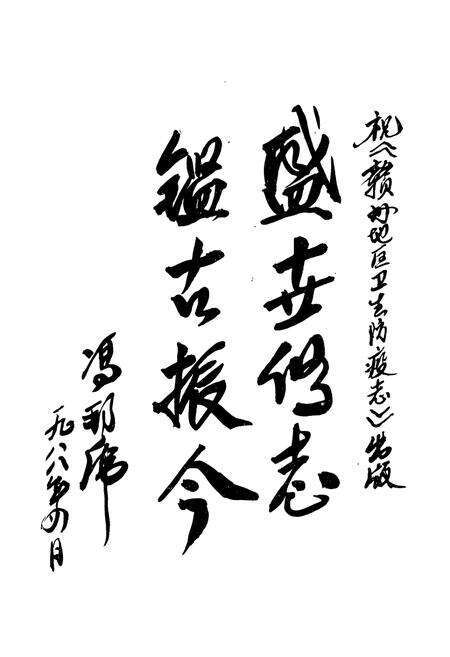 祝《赣州地区卫生防疫志》出版
盛世修志
鑑古振今
冯
一九八八年四月